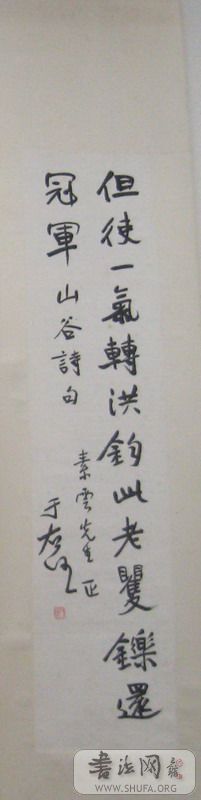 但使一氣轉洪鈞此老矍鑠還
冠軍山谷詩句
素雲先生正
于右任
書法网
WWW.SHUFA.ORG